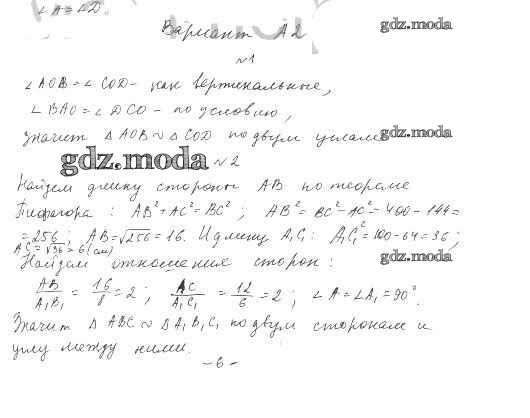 ∠A = ∠D.
gdz.moda
Вариант А2
№1
∠AOB = ∠COD - как вертикальные,
∠BAO = ∠DCO - по условию,
Значит △AOB ∼ △COD по двум углам
gdz.moda
gdz.moda
№2
Найдем длину стороны AB по теореме
Пифагора : AB² + AC² = BC² ; AB² = BC² - AC² = 400 - 144 =
= 256 ; AB = √256 = 16. И длину A₁C₁ : A₁C₁² = 100 - 64 = 36 ;
A₁C₁ = √36 = 6 (см)
Найдем отношения сторон :
gdz.moda
AB/A₁B₁ = 16/8 = 2 ; AC/A₁C₁ = 12/6 = 2 ; ∠A = ∠A₁ = 90°.
Значит △ABC ∼ △A₁B₁C₁ по двум сторонам и
углу между ними.
- 6 -